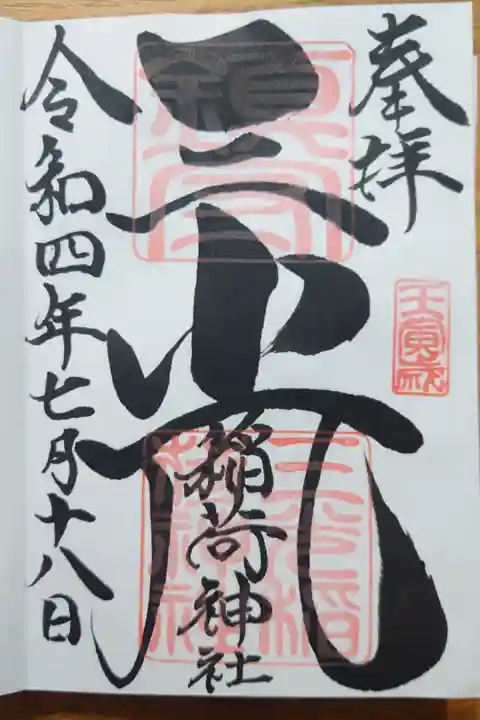 奉拝
壬寅歳
三光
稲荷神社
令和四年七月十八日